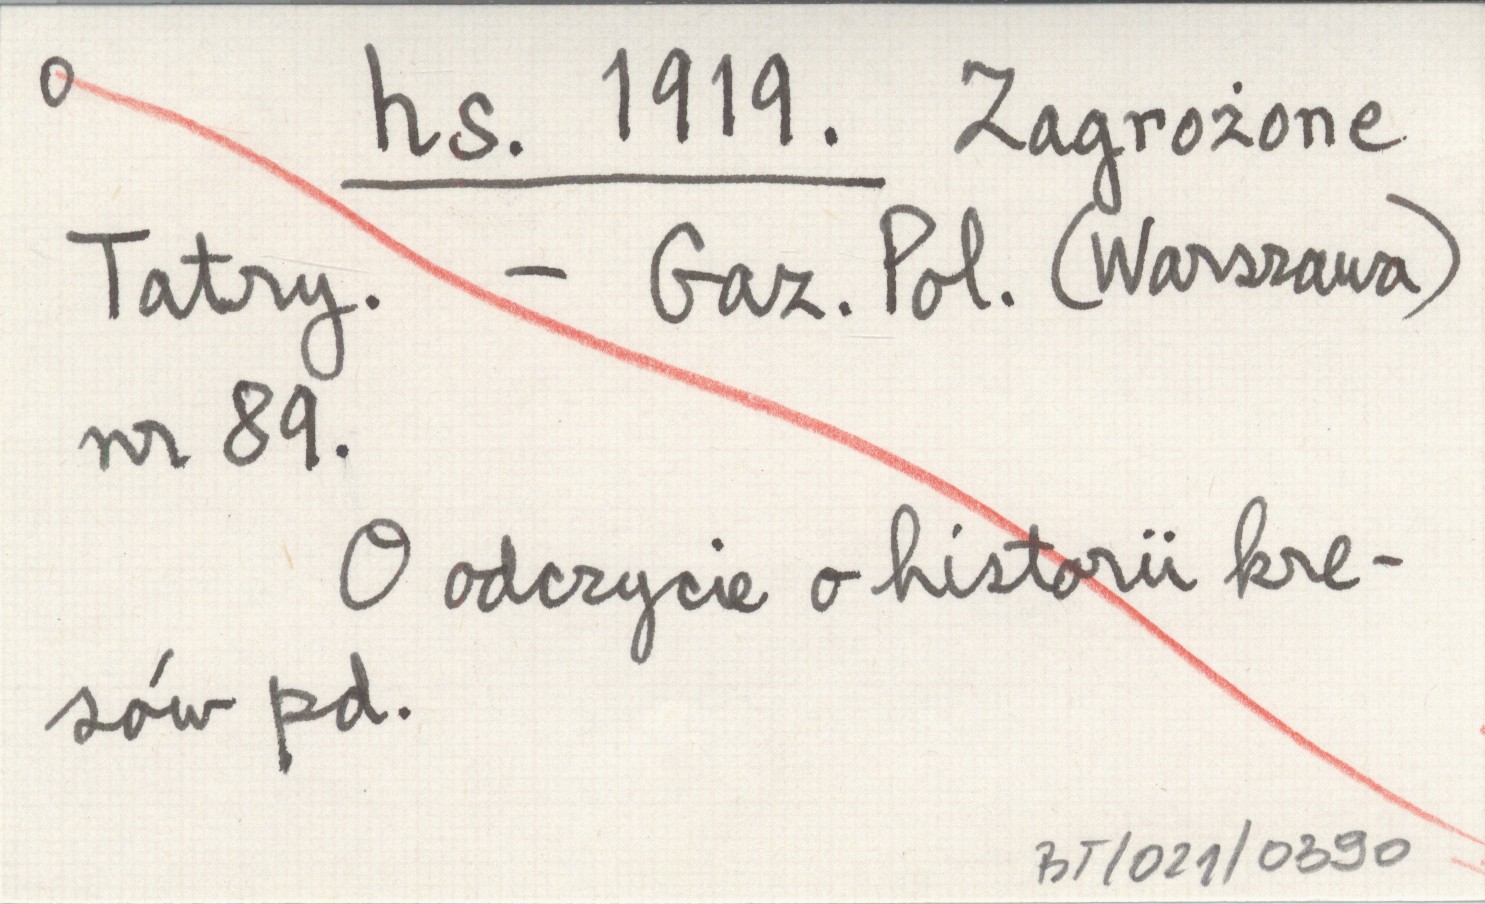 o hs. 1919. Zagrożone
Tatry. – Gaz. Pol. (Warszawa)
nr 89.
O odczycie o historii kre-
sów pd.
BT/021/0390